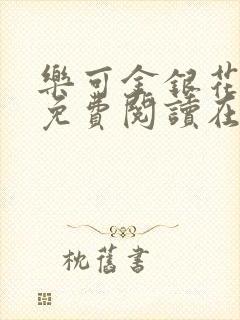 樂可金銀花
免費閱讀在
枕舊書